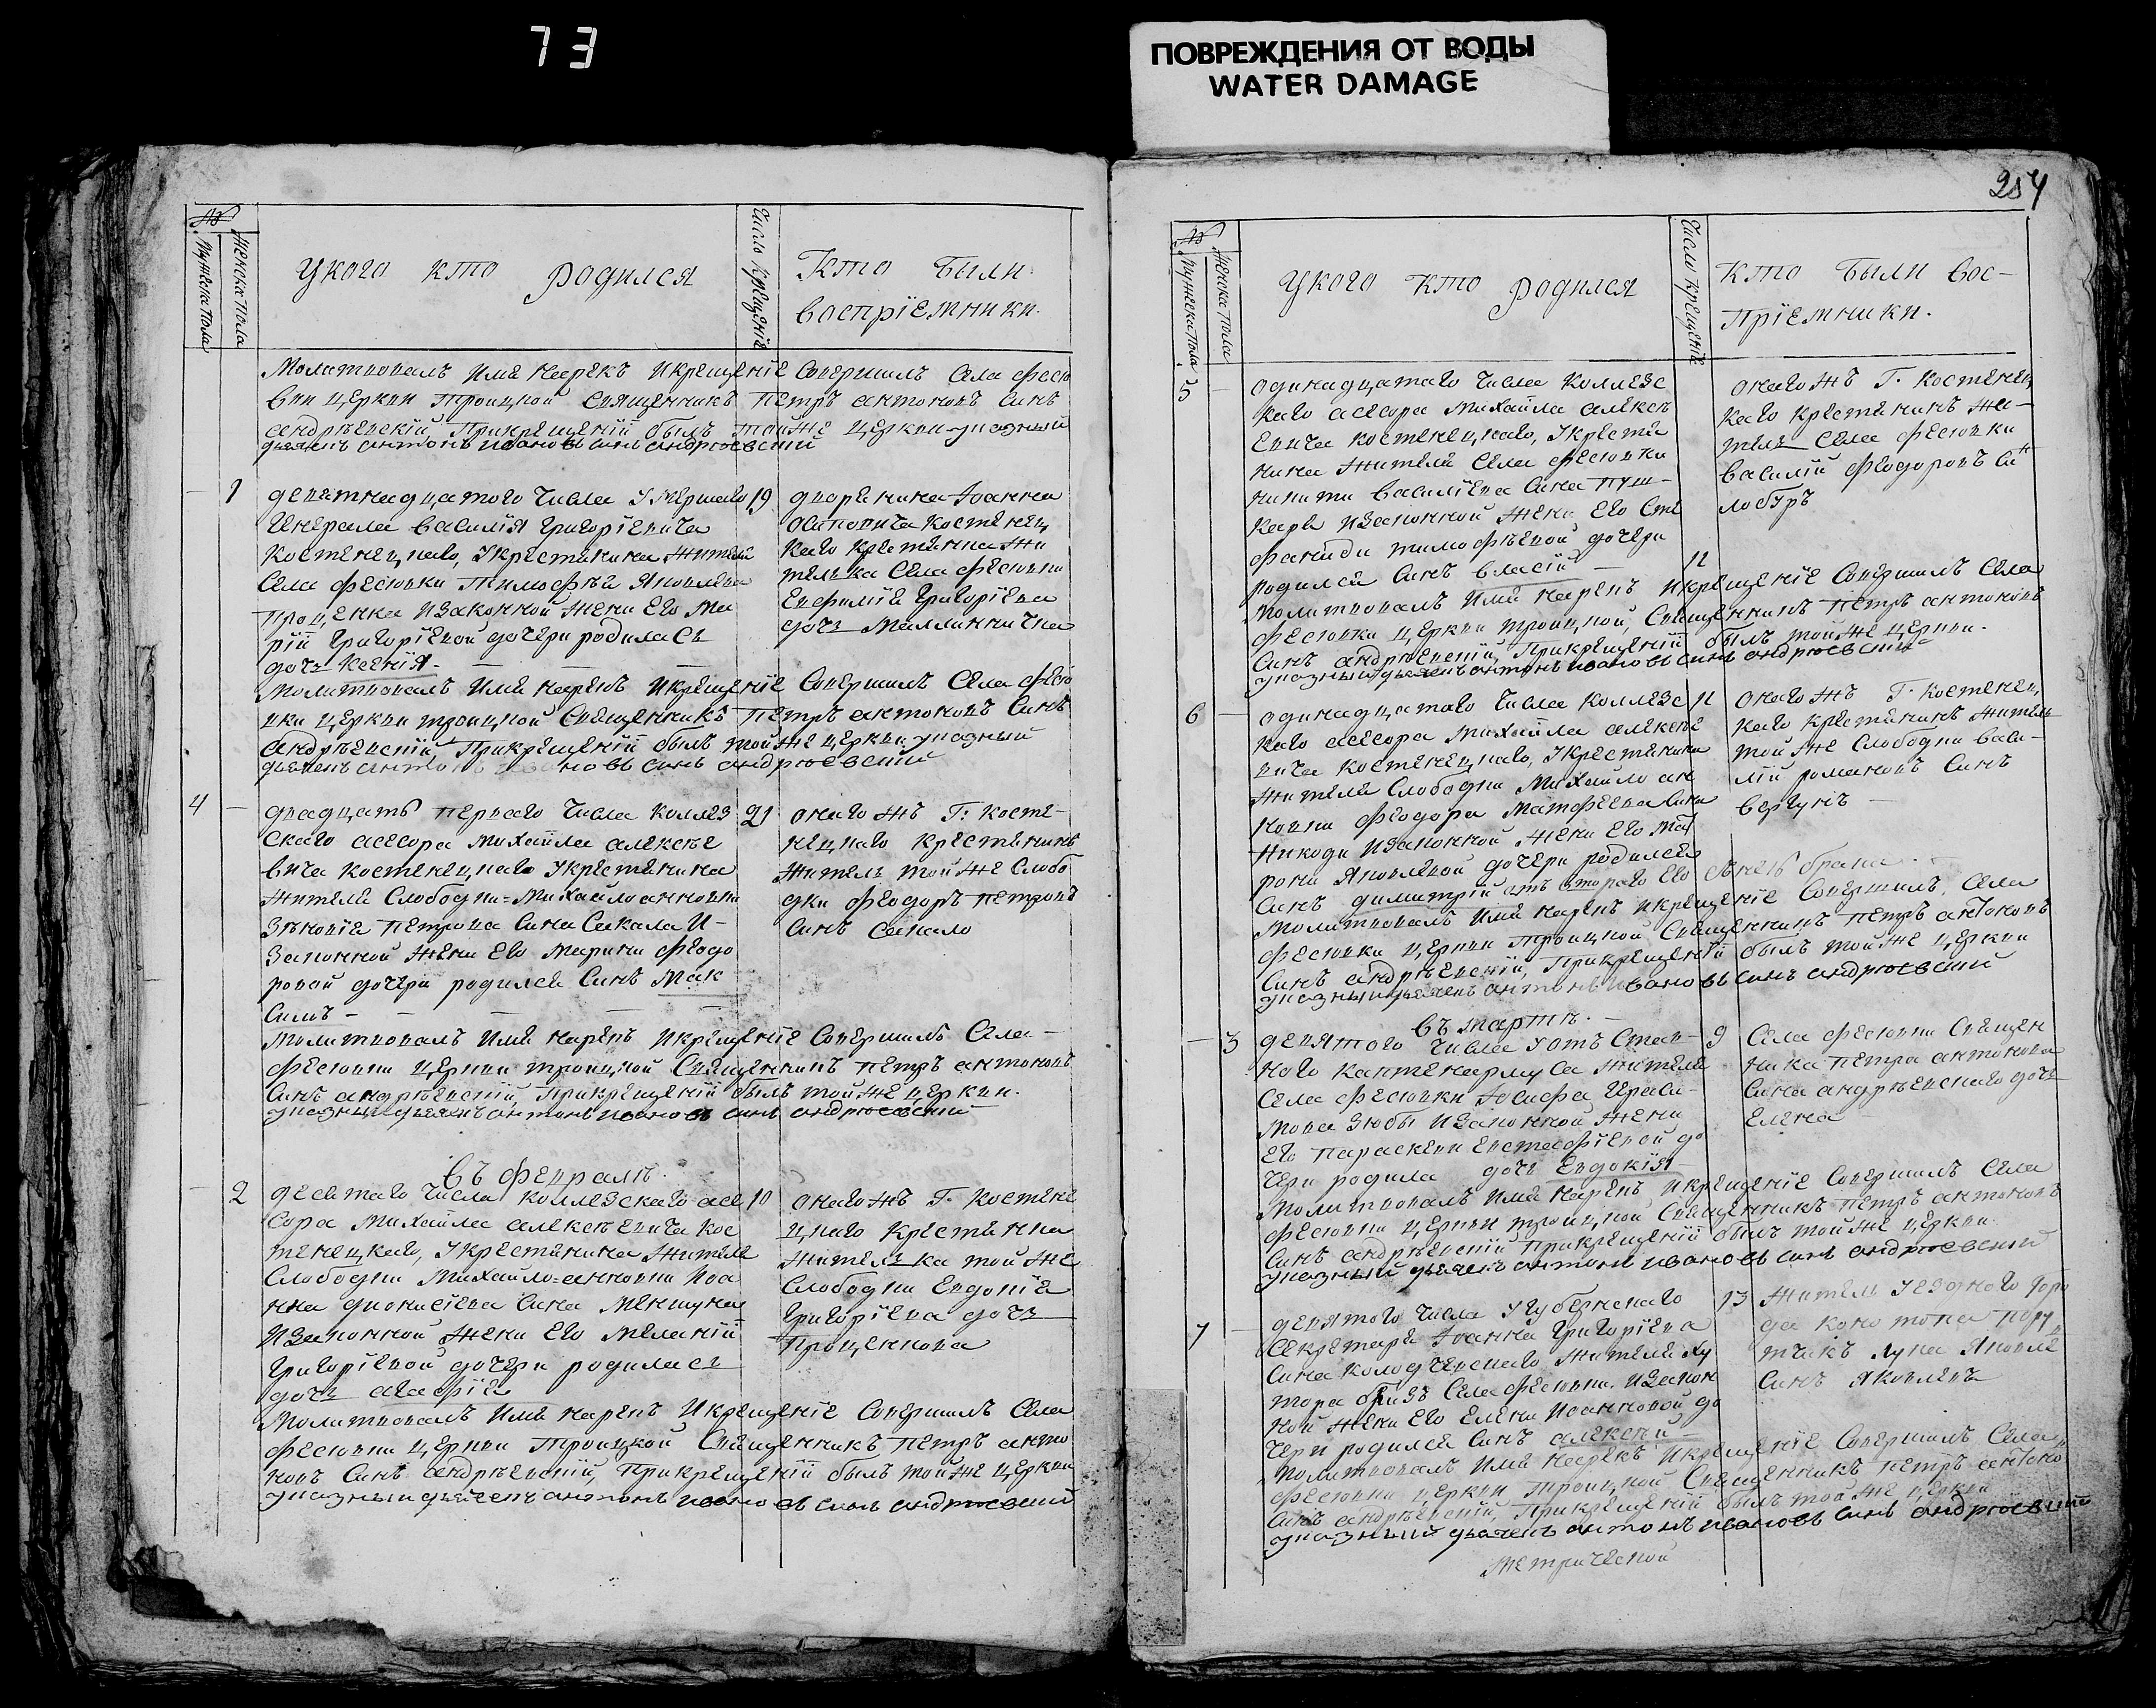 73
ПОВРЕЖДЕНИЯ ОТ ВОДЫ
WATER DAMAGE
№
Мужеска пола
Женска пола
У кого кто родился
Число крещенїе
Кто были
воспрїемники.
Молитвовалъ имя нарекъ и крещенїе совершилъ села Фесю
вки церкви троицкой священникъ Петръ антоновъ синъ
андрѣевскїй, при крещенїи былъ той же церкви указный
дьячекъ антонъ ивановъ синъ андрюевский
1
девятнадцатого числа у умершаго
генерала василїя григорїевича
Костенецкаго, у крестянина жителя
села фесювки тимофѣя яковлева
проценка и законной жени его ма
рїи григорїевой дочери родилась
дочь ксенїя.
19
дворянина Іоанна
осиповича костенец
каго крестянка жи
телька села фесювки
Евфимїя григорїева
дочь Малиничка
Молитвовалъ имя нарекъ и крещенїе совершилъ села фесю
вки церкви троицкой священникъ петръ антоновъ синъ
андрѣевскїй, при крещенїи былъ той же церкви указный
дьячекъ антонъ ивановъ синъ андрюевский
4
двадцать перваго числа коллез
скаго асесора михайла алексѣе
вича костенецкаго у крестянина
жителя слободки=михайлоанновки
Зѣновїя петрова сина сакала и-
законной жени его марини феодо
ровой дочери родился синъ мак
симъ
21
онаго жъ Г: косте-
нецкаго крестянинъ
житель той же слобо
дки феодоръ петровъ
синъ сакало
Молитвовалъ имя нарекъ и крещенїе совершилъ села
фесювки церкви троицкой священникъ петръ антоновъ
синъ андрѣевскїй, при крещенїи былъ той же церкви.
указный дьячекъ антонъ ивановъ синъ андрюевский
въ февралѣ.
2
десятаго числа коллезскаго асе
сора михайла алексѣевича кос
тенецкаго, у крестянина жителя
слободки михайло=анновки Иоа
нна дионисїева сина Меншуна
и законной жени его меланїи
григорїевой дочери родилась
дочь агафїя
10
онаго жъ Г. костене
цкаго крестянка
жителька той же
слободки евдокїя
григорїева дочь
проценкова
Молитвовалъ имя нарекъ и крещенїе совершилъ села
фесювки церкви троицкой священникъ петръ анто
новъ синъ андрѣевскїй, при крещенїи былъ той же церкви
указный дьячекъ антонъ ивановъ синъ андрюевский
254
№
Мужеска пола
Женска пола
У кого кто родился
Число крещенїе
кто были вос-
прїемники.
5
одинадцатаго числа коллезс
каго асесора михайла алексѣ
евича костенецкаго, у крестя
нина жителя села фесювки
никити василїева сина пуш-
каря и законной жени его сте
фаниди тимофѣевой дочери
родился синъ власїй
11
онаго жъ Г. костенец
каго крестянинъ жи-
тель села фесювки
василїй феодоровъ си
лобуръ
Молитвовалъ имя нарекъ и крещенїе совершилъ села
фесювки церкви троицкой, священникъ петръ антоновъ
синъ андрѣевскїй, при крещенїи былъ той же церкви.
указный дьячекъ антонъ ивановъ синъ андрюевский
6
одинадцатаго числа коллезс
каго асесора михайла алексѣе
вича костенецкаго, у крестянина
жителя слободки михайлоан
новки феодора матфеева сина
никоди и законной жени его мат
рони яковлевой дочери родился
синъ димитрїй отъ второго его брака
11
онаго жъ Г. костенец
каго крестянинъ житель
той же слободки васи-
лїй романовъ синъ
вергунъ
Молитвовалъ имя нарекъ и крещенїе совершилъ села
фесювки церкви троицкой священникъ петръ антоновъ
синъ андрѣевскїй, при крещенїи былъ той же церкви
указный дьячекъ антонъ ивановъ синъ андрюевский
въ мартѣ.
3
девятого числа у отъ став-
ного каптенармуса жителя
села фесювки Іосифа гераси-
мова Зюбы и законной жени
его параскеви евстафїевой до
чери родила дочь евдокїя
9
села фесювки священ
ника петра антонова
сина андрѣевскаго дочь
Елена
Молитвовалъ имя нарекъ и крещенїе совершилъ села
фесювки церкви троицкой священникъ петръ антоновъ
синъ андрѣевскїй при крещенїи былъ той же церкви.
указный дьячекъ антонъ ивановъ синъ андрюевский
7
девятого числа у губернскаго
секретаря Іоанна григорїева
сина колодчевскаго жителя ху
тора близъ села фесювки. и закон
ной жени его елени иоанновой до
чери родился синъ алексѣй
13
житель уезднаго горо
да конотопа пору
тчикъ лука яковле
синъ яковлевъ
Молитвовалъ имя нарекъ и крещенїе совершилъ села
фесювки церкви троицкой священникъ петръ антоно
синъ андрѣевскїй, при крещенїи былъ той же церкви
указный дьячекъ антонъ ивановъ синъ андрюевский
метрической